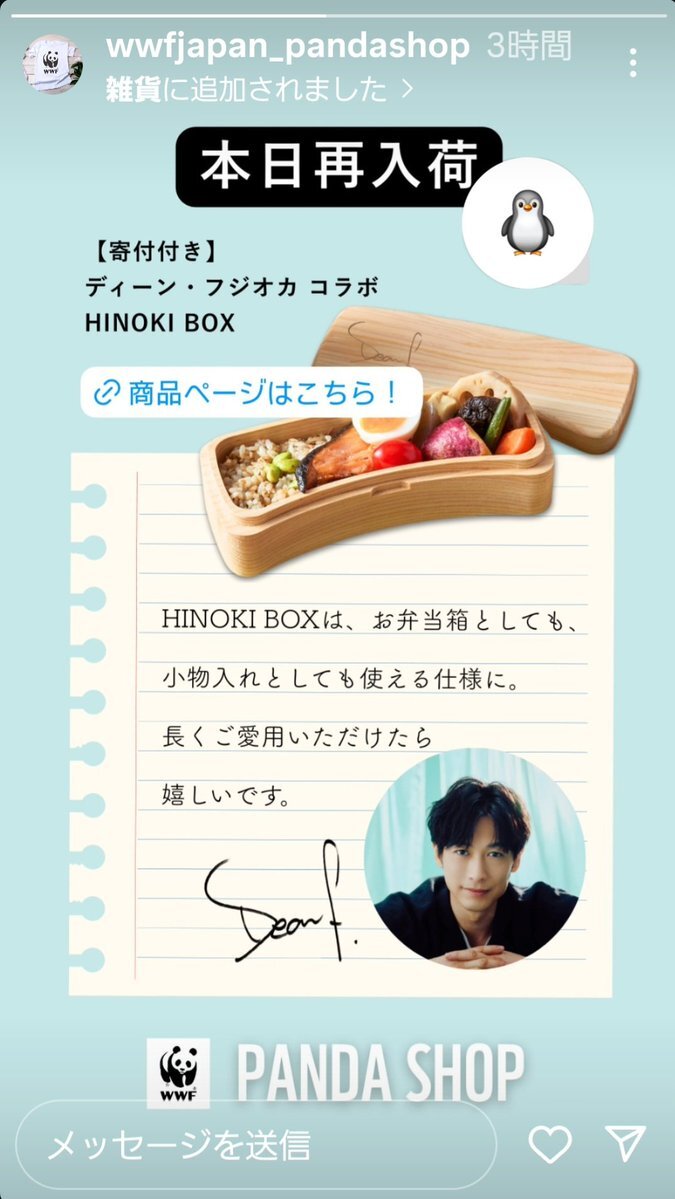 wwfjapan_pandashop 3時間
雑貨に追加されました >
本日再入荷
【寄付付き】
ディーン・フジオカ コラボ
HINOKI BOX
Dean f.
商品ページはこちら!
HINOKI BOXは、お弁当箱としても、
小物入れとしても使える仕様に。
長くご愛用いただけたら
嬉しいです。
Dean f.
WWF
PANDA SHOP
メッセージを送信